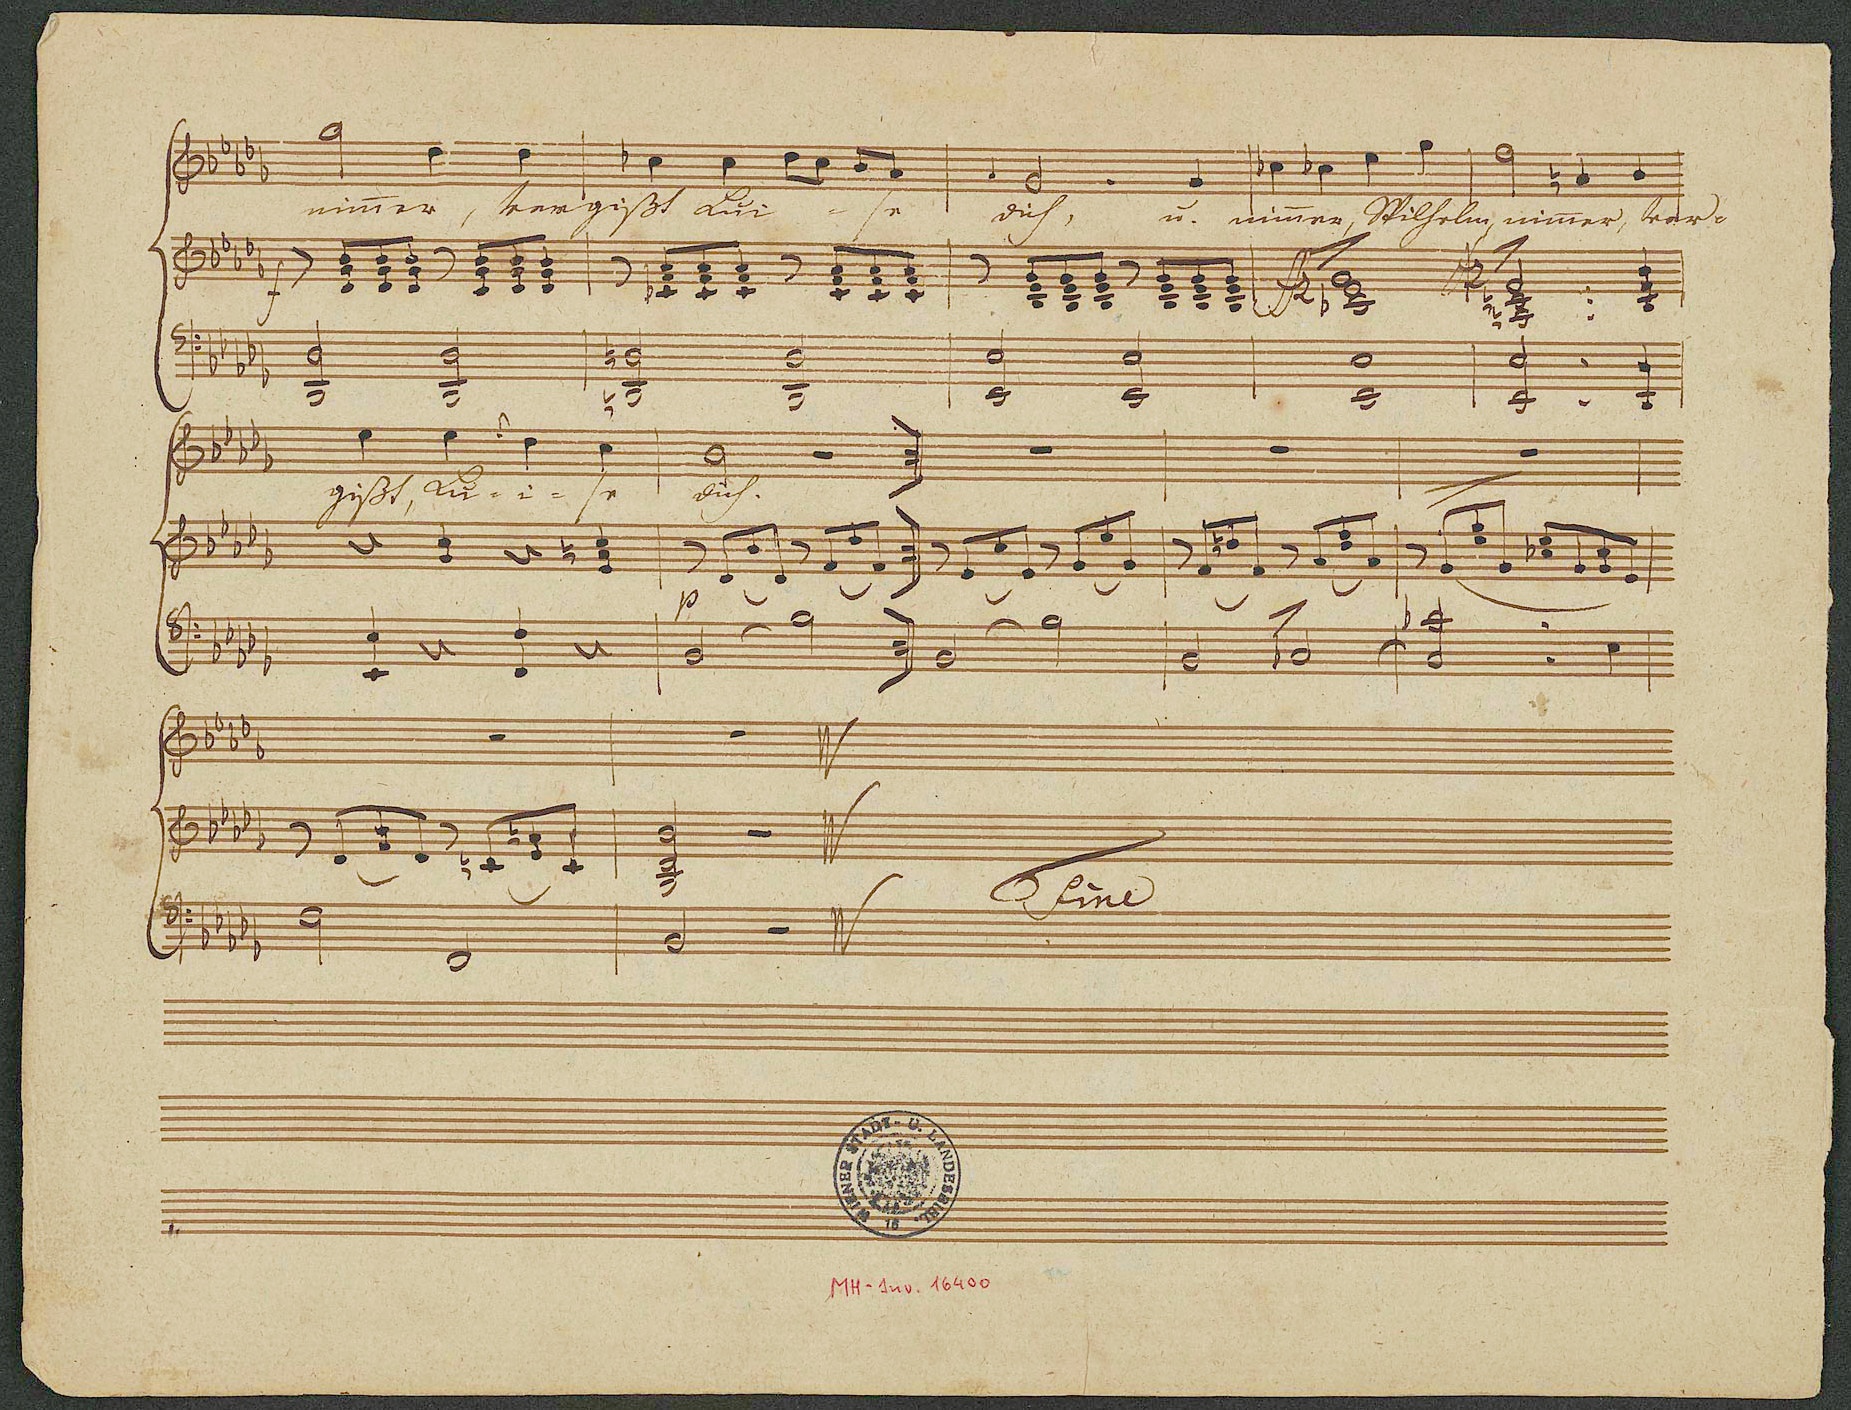 nim̄er, vergißt Lui - se dich, u. nim̄er, Wilhelm, nim̄er, ver-
f
gißt, Lu - i - se dich.
p
Fine
WIENER STADT- U. LANDESBIBL.
16
MH-Inv. 16400